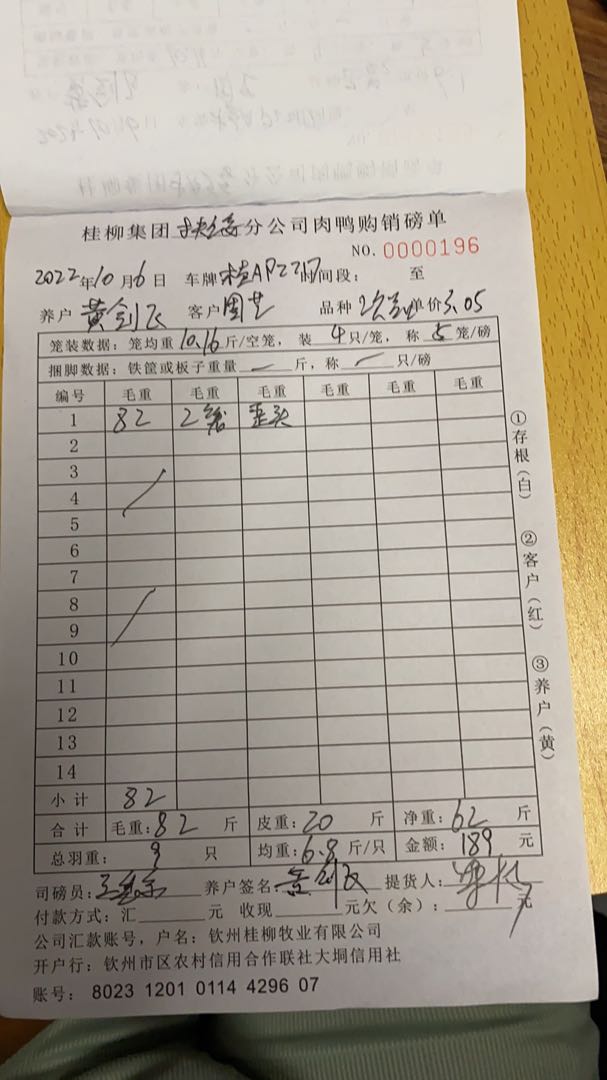 桂柳集团 分公司肉鸭购销磅单
NO. 0000196
2022年10月6日 车牌桂AP2717时间段： 至
养户黄剑飞 客户周艺 品种 单价3.05
笼装数据：笼均重10.16斤/空笼， 装 4只/笼， 称 5 笼/磅
捆脚数据：铁筐或板子重量 — 斤，称 — 只/磅
编号 毛重 毛重 毛重 毛重 毛重 毛重
1 82 2笼 歪头
2
3
4
5
6
7
8
9
10
11
12
13
14
小计 82
合计 毛重：82 斤 皮重：20 斤 净重：62 斤
总羽重： 9 只 均重：6.8斤/只 金额：189 元
司磅员： 养户签名：黄剑飞 提货人：
付款方式：汇 元 收现 元欠（余）： 元
公司汇款账号，户名：钦州桂柳牧业有限公司
开户行：钦州市区农村信用合作联社大垌信用社
账号： 8023 1201 0114 4296 07
①存根（白）
②客户（红）
③养户（黄）